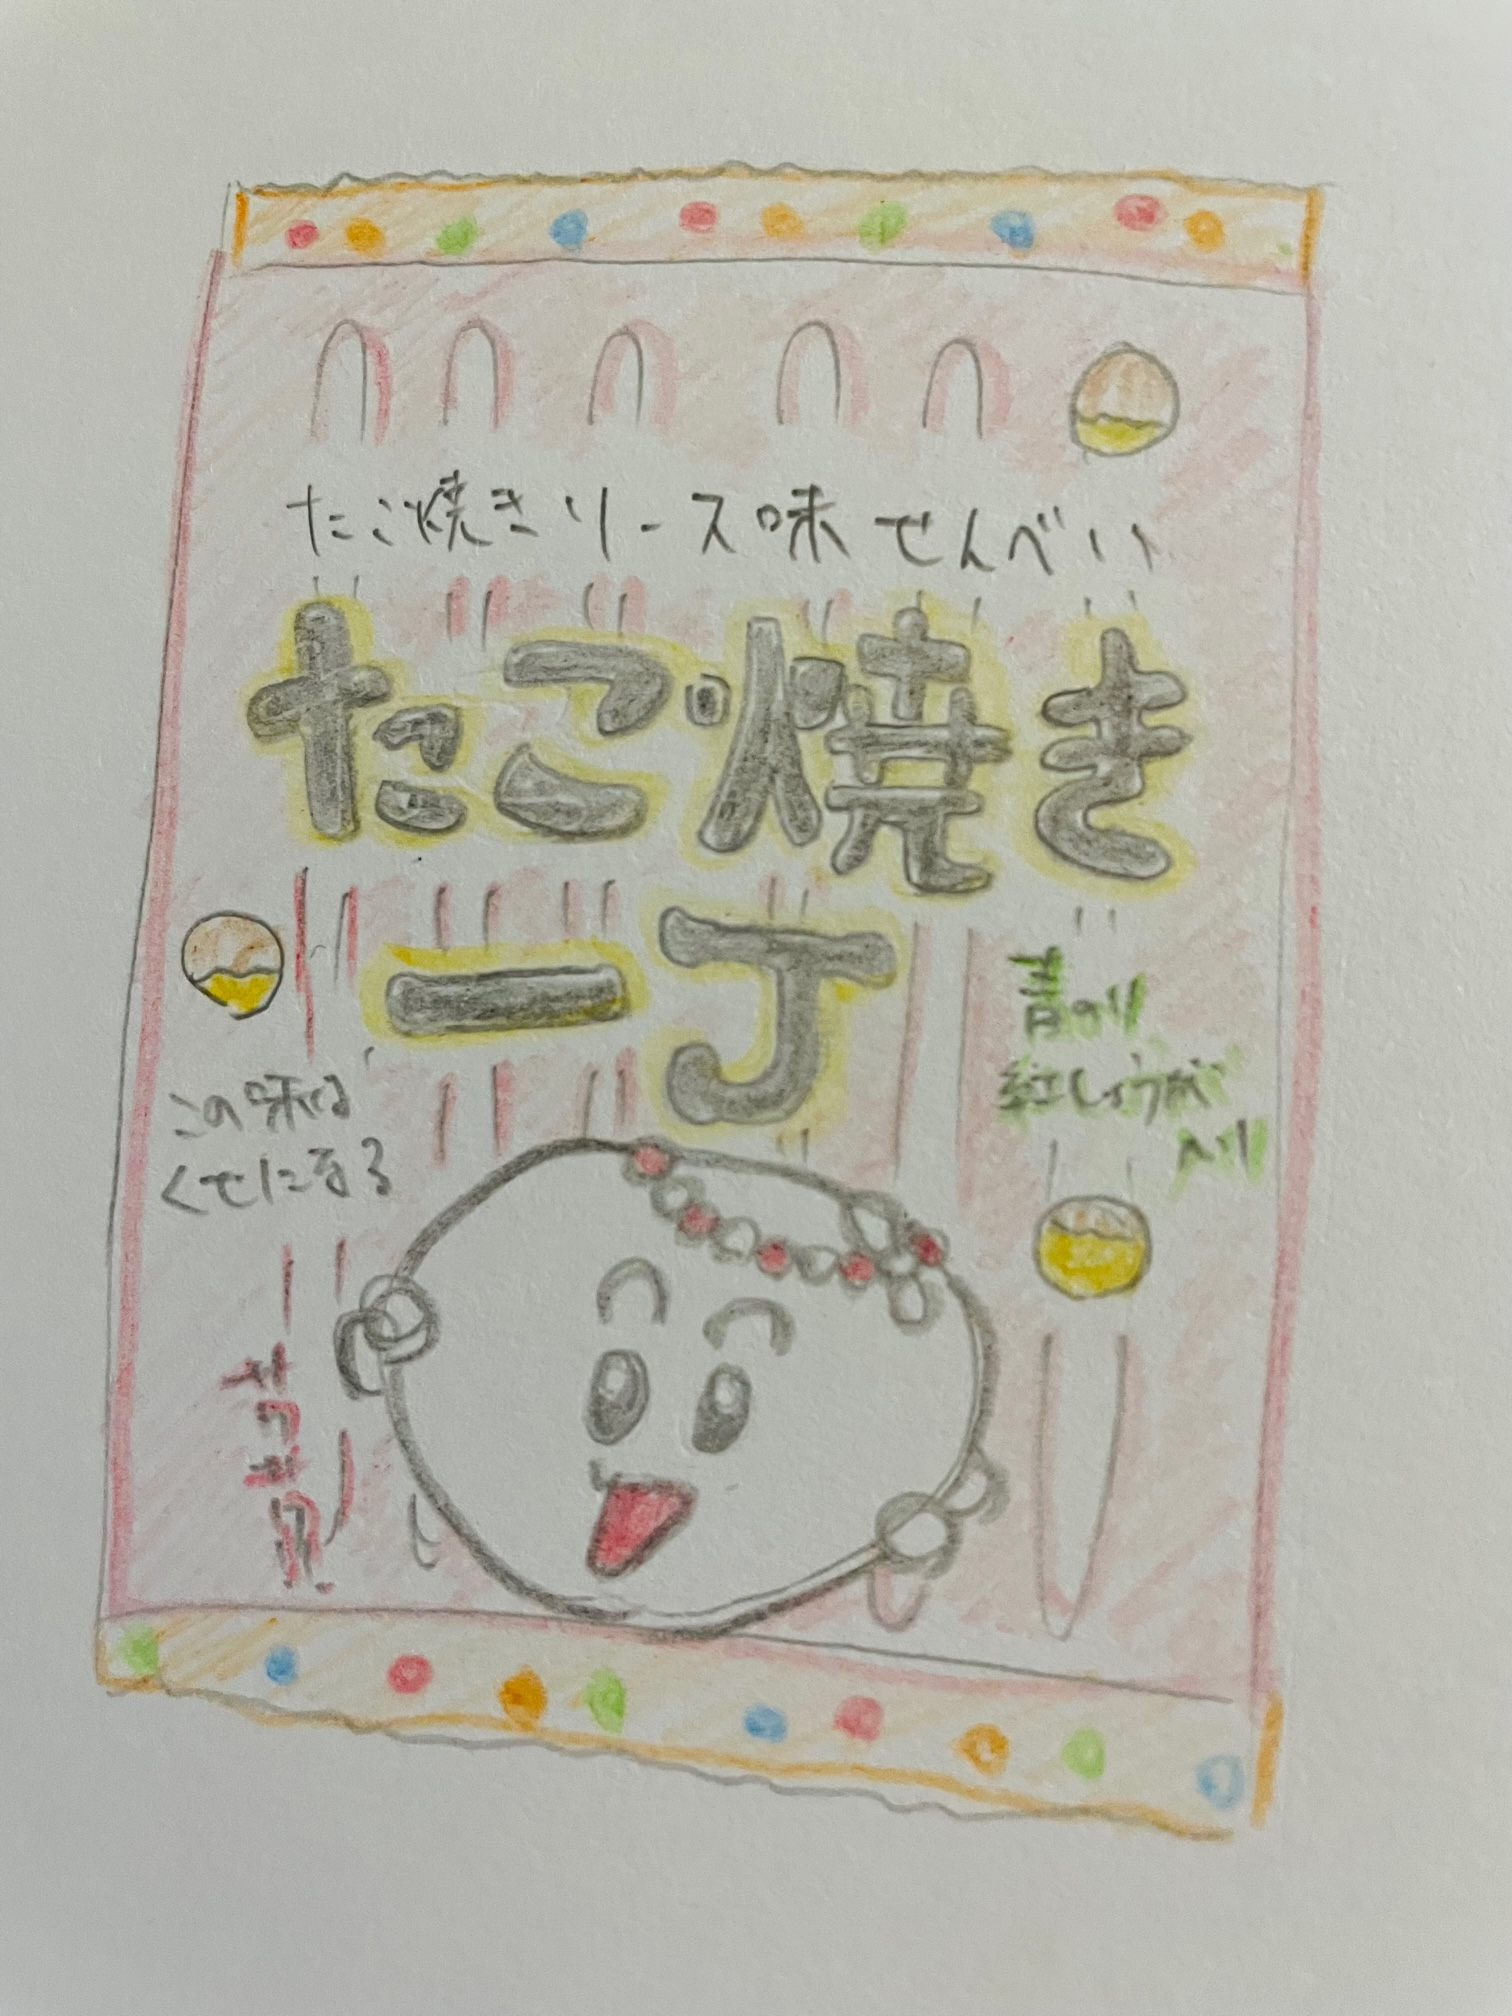 たこ焼きソース味せんべい
たこ焼き
一丁
青のり
紅しょうが
入り
この味は
くせになる
サクサク